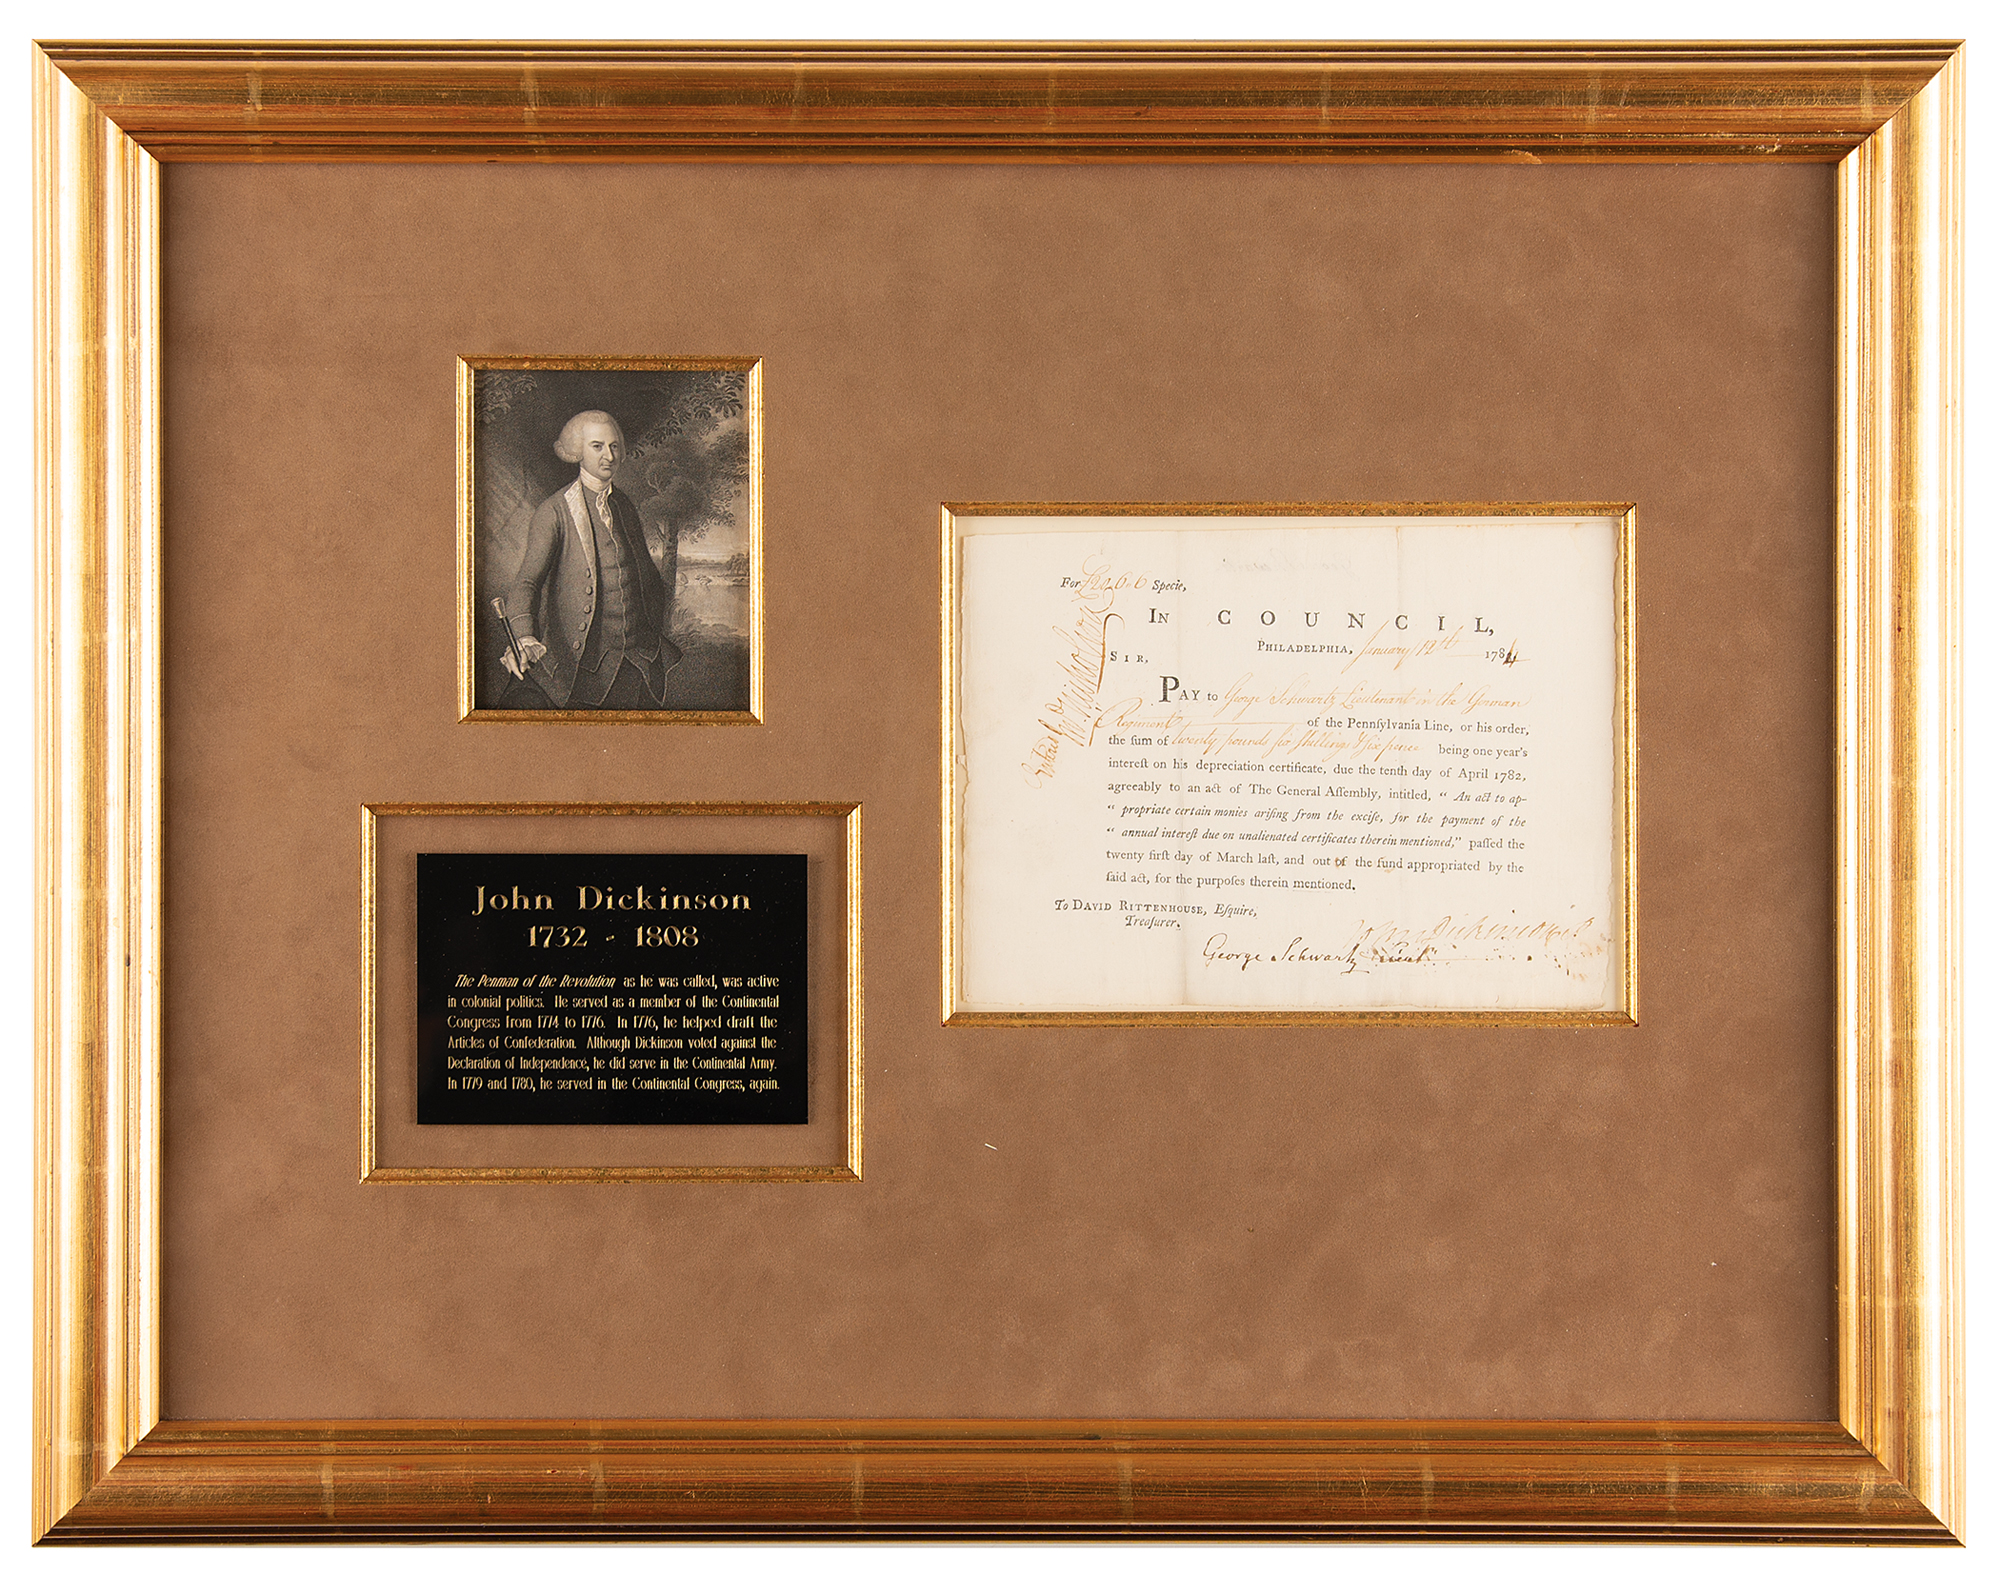 John Dickinson
1732 - 1808
The Penman of the Revolution as he was called, was active
in colonial politics. He served as a member of the Continental
Congress from 1774 to 1776. In 1776, he helped draft the
Articles of Confederation. Although Dickinson voted against the
Declaration of Independence, he did serve in the Continental Army.
In 1779 and 1780, he served in the Continental Congress, again.
For £20..6..6 Specie,
IN COUNCIL,
PHILADELPHIA, January 12th 1784
SIR,
PAY to George Schwartz Lieutenant in the German
Regiment of the Pennſylvania Line, or his order,
the ſum of twenty pounds six shillings & six pence being one year's
intereſt on his depreciation certificate, due the tenth day of April 1782,
agreeably to an act of The General Aſſembly, intitled, “ An act to ap-
“ propriate certain monies ariſing from the exciſe, for the payment of the
“ annual intereſt due on unalienated certificates therein mentioned,” paſſed the
twenty firſt day of March laſt, and out of the fund appropriated by the
ſaid act, for the purpoſes therein mentioned.
To DAVID RITTENHOUSE, Eſquire,
Treaſurer.
John Dickinson
George Schwartz Lieut
Entered
Jno. Nicholson